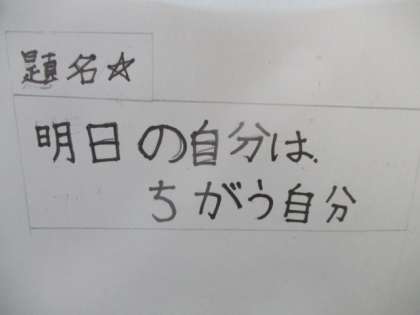 題名☆
明日の自分は、
ちがう自分